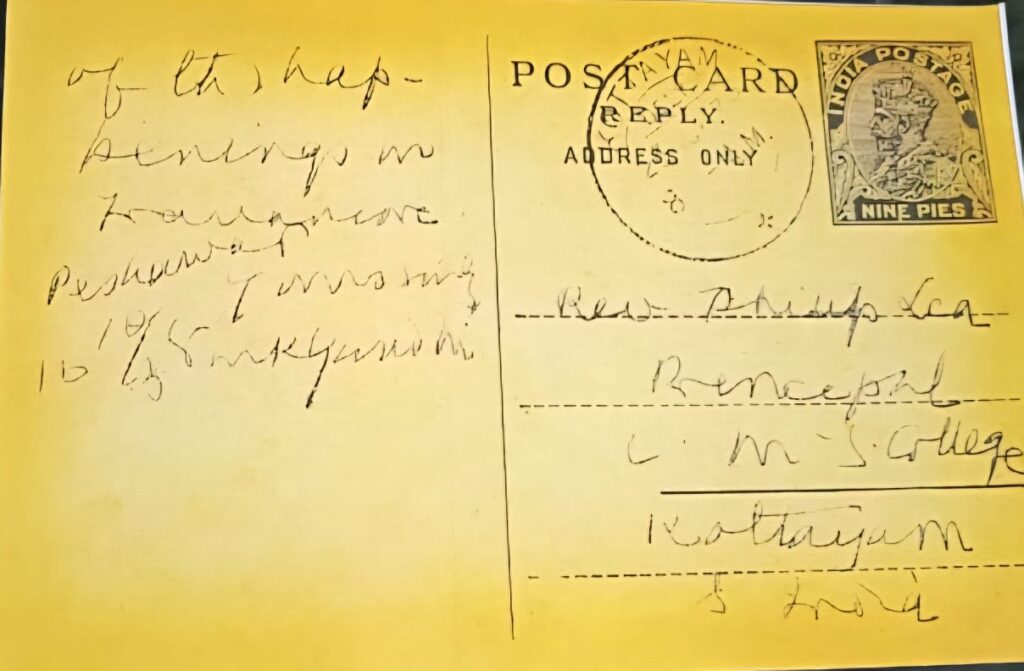 of the hap-
penings in
Travancore
Peshawar
Yours sincy
10/10/38 mkgandhi
KOTTAYAM
POST CARD
REPLY.
ADDRESS ONLY
INDIA POSTAGE
NINE PIES
Rev Philip Lee
Principal
C. M. S. College
Kottayam
S India